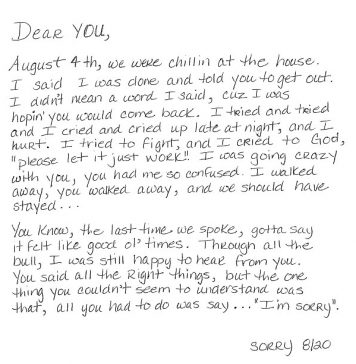 Dear YOU,
August 4th, we were chillin at the house.
I said I was done and told you to get out.
I didn't mean a word I said, cuz I was
hopin' you would come back. I tried and tried
and I cried and cried up late at night, and I
hurt. I tried to fight, and I cried to God,
"please let it just work!!" I was going crazy
with you, you had me so confused. I walked
away, you walked away, and we should have
stayed...
You know, the last time we spoke, gotta say
it felt like good ol' times. Through all the
bull, I was still happy to hear from you.
You said all the Right things, but the one
thing you couldn't seem to understand was
that, all you had to do was say..."I'm sorry".
SORRY 8/20